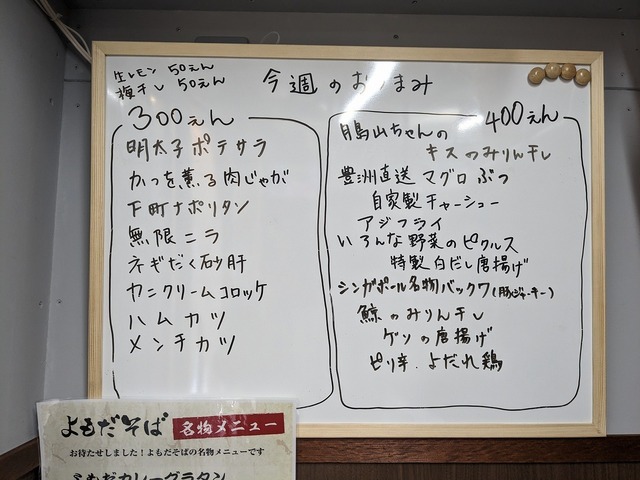 生レモン 50えん
梅干し 50えん
今週のおつまみ
300えん
明太子ポテサラ
かつを薫る肉じゃが
下町ナポリタン
無限ニラ
ネギだく砂肝
カニクリームコロッケ
ハムカツ
メンチカツ
400えん
月島山ちゃんの
キスのみりん干し
豊洲直送マグロぶつ
自家製チャーシュー
アジフライ
いろんな野菜のピクルス
特製白だし唐揚げ
シンガポール名物バックワ(豚ジャーキー)
鯨のみりん干し
ゲソの唐揚げ
ピリ辛.よだれ鶏
よもだそば 名物メニュー
お待たせしました！よもだそばの名物メニューです
よもだカレーグラタン